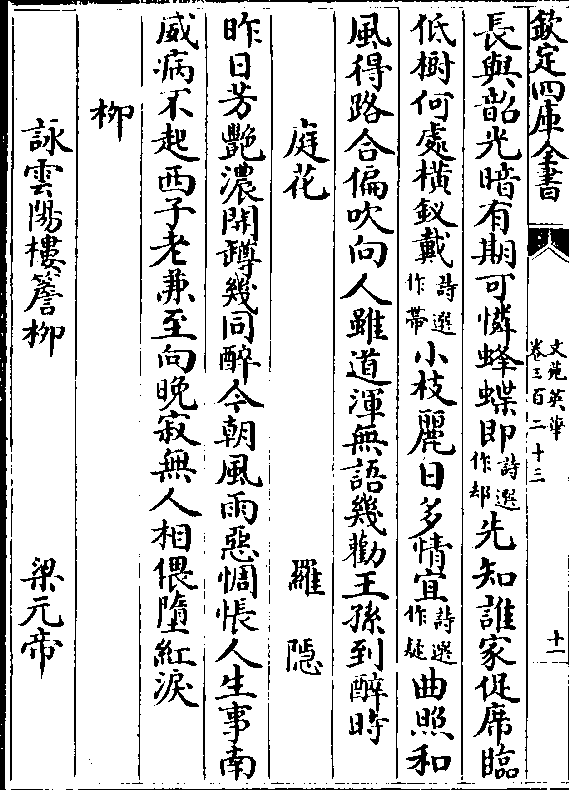 欽定四庫全書
文苑英華
卷三百二十三
十一
長與韶光暗有期可憐蜂蝶即詩選作却先知誰家促席臨
低樹何處橫釵戴詩選作帯小枝麗日多情宜詩選作疑曲照和
風得路合偏吹向人雖道渾無語幾勸王孫到醉時
庭花 羅隱
昨日芳艷濃開罇幾同醉今朝風雨惡惆悵人生事南
威病不起西子老兼至向晚寂無人相偎墮紅淚
栁
詠雲陽樓簷栁 梁元帝